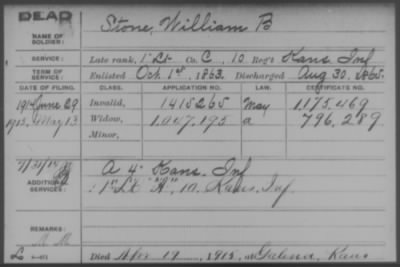 DEAD
NAME OF SOLDIER: Stone, William B
SERVICE: Late rank, 1" Lt Co. C, 10 Reg't Kans. Inf
TERM OF SERVICE: Enlisted Oct 1st, 1863. Discharged Aug 30. 1865.
DATE OF FILING. CLASS. APPLICATION NO. LAW. CERTIFICATE NO.
June 29 Invalid, 1415265 May 1,175,469
1915, May 13 Widow, 1,047,195 a 796,289
Minor,
A 4" Kans. Inf
ADDITIONAL SERVICES: 1" Lt "A", 10. Kans. Inf
REMARKS:
Died Apr 19, 1915, at Galena, Kans